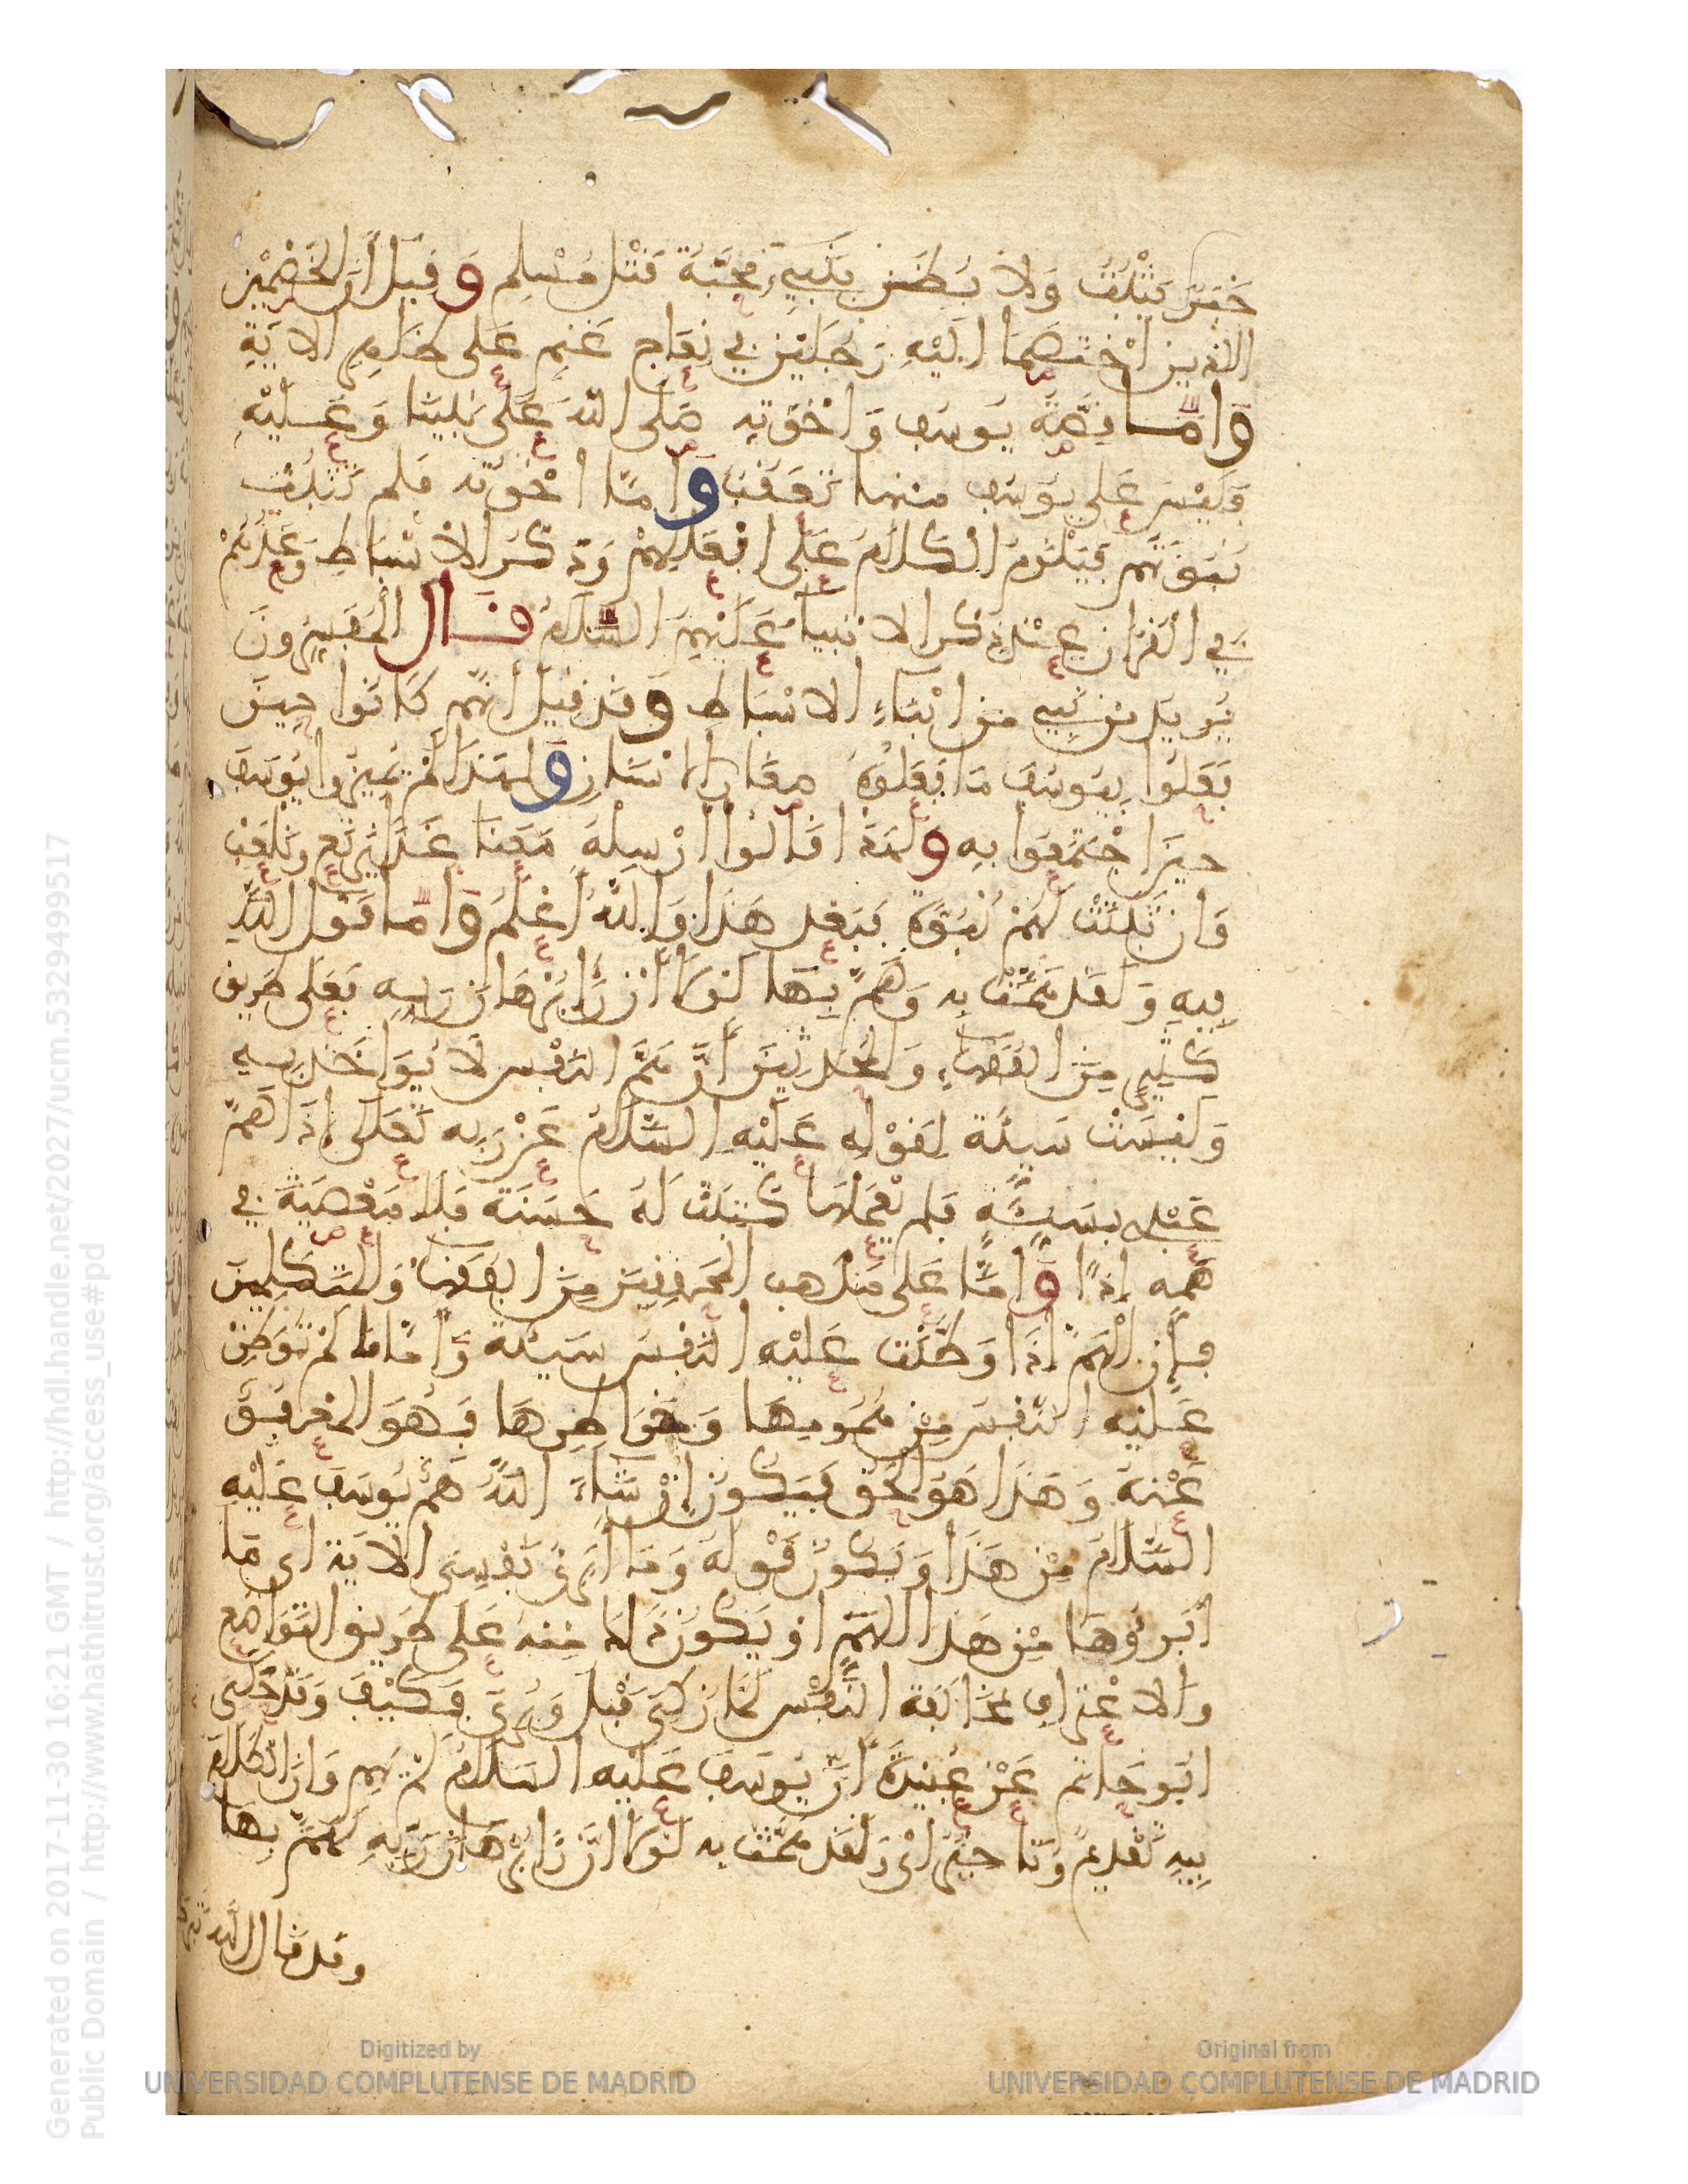 خبر يثبت ولا يظن بنبيء محبة قتل مسلم وقيل أن الخصمين
الذين اختصما إليه رجلين في نعاج غنم على ظاهر الاية
واما قصة يوسف واخوته صلى الله على نبينا وعليه
فليس على يوسف منها تعقب واما اخوته فلم تثبت
نبوتهم فيلزم الكلام على افعالهم وذكر الاسباط وعدهم
في القران عند ذكر الانبياء عليهم السلام قال المفسرون
يريد من نبي من ابناء الاسباط وقد قيل أنهم كانوا حين
فعلوا بيوسف ما فعلوه صغار الاسنان ولهذا لم يميزوا يوسف
حين اجتمعوا به ولهذا قالوا ارسله معنا غدا نرتع ونلعب
وان ثبتت لهم نبوة فبعد هذا والله أعلم واما قول الله
فيه ولقد همت به وهم بها لولا أن رأى برهان ربه فعلى طريق
كثير من الفقهاء والمحدثين أن هم النفس لا يواخذ به
وليست سيئة لقوله عليه السلام عن ربه تعلى إذا هم
عبدي بسيئة فلم يعملها كتبت له حسنة فلا معصية في
همه إذا واما على مذهب المحققين من الفقهاء والمتكلمين
فإن الهم إذا وطنت عليه النفس سيئة واما ما لم توطن
عليه النفس من همومها وخواطرها فهو المعفو
عنه وهذا هو الحق فيكون إن شاء الله هم يوسف عليه
السلام من هذا ويكون قوله وما أبرئ نفسي الاية اي ما
أبرؤها من هذا الهم او يكون ذلك منه على طريق التواضع
والاعتراف بمخالفة النفس لما زكي قبل وبرئ فكيف وقد حكى
ابو حاتم عن عبيدة أن يوسف عليه السلام لم يهم وان الكلام
فيه تقديم وتاخير اي ولقد همت به لولا أن رأى برهان ربه لهم بها
وقد قال الله

Generated on 2017-11-30 16:21 GMT / http://hdl.handle.net/2027/ucm.5329499517
Public Domain / http://www.hathitrust.org/access_use#pd
Digitized by
UNIVERSIDAD COMPLUTENSE DE MADRID
Original from
UNIVERSIDAD COMPLUTENSE DE MADRID